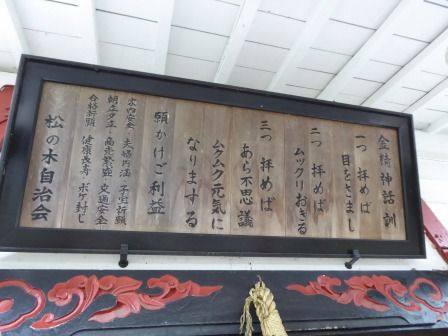 金精神話訓
一つ 拝めば
目をさまし
二つ 拝めば
ムックリおきる
三つ 拝めば
あら不思議
ムクムク元気に
なりまする
願かけご利益
家内安全・夫婦円満 子宝祈願
商売繁盛 交通安全
合格祈願 健康長寿 ボケ封じ
松の木自治会